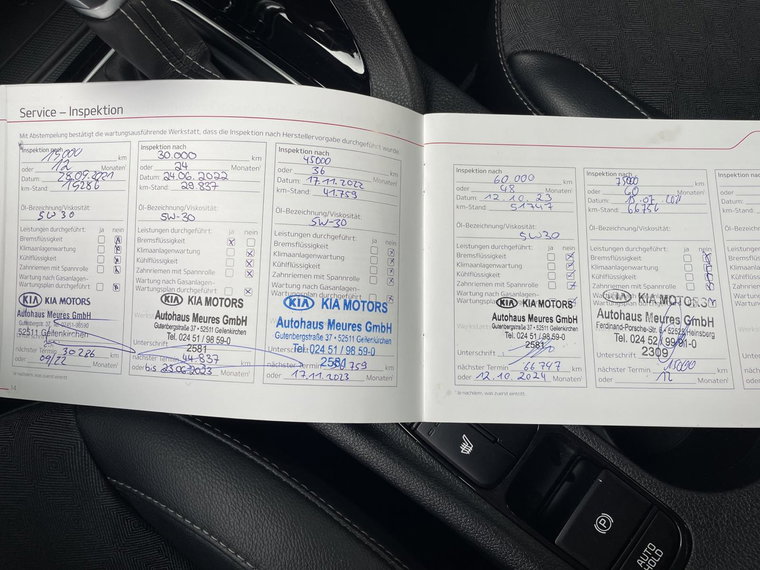 Service – Inspektion
Mit Abstempelung bestätigt die wartungsausführende Werkstatt, dass die Inspektion nach Herstellervorgabe durchgeführt wurde
Inspektion nach
15000 km
oder 12 Monaten¹
Datum: 28.09.2021
km-Stand: 15286
Öl-Bezeichnung/Viskosität:
5W30
Leistungen durchgeführt: ja nein
Bremsflüssigkeit
Klimaanlagenwartung
Kühlflüssigkeit
Zahnriemen mit Spannrolle
Wartung nach Gasanlagen-
Wartungsplan durchgeführt
KIA MOTORS
Autohaus Meures GmbH
52511 Geilenkirchen
nächster Termin 30286 km
oder 09/22 Monaten¹
Inspektion nach
30.000 km
oder 24 Monaten¹
Datum: 24.06.2022
km-Stand: 29.837
Öl-Bezeichnung/Viskosität:
5W-30
Leistungen durchgeführt: ja nein
Bremsflüssigkeit
Klimaanlagenwartung
Kühlflüssigkeit
Zahnriemen mit Spannrolle
Wartung nach Gasanlagen-
Wartungsplan durchgeführt
KIA MOTORS
Autohaus Meures GmbH
Gutenbergstraße 37 • 52511 Geilenkirchen
Tel. 024 51 / 98 59-0
2581
nächster Termin 44.837 km
oder bis 23.06.2023 Monaten¹
Inspektion nach
45000 km
oder 36 Monaten¹
Datum: 17.11.2022
km-Stand: 41.759
Öl-Bezeichnung/Viskosität:
5W-30
Leistungen durchgeführt: ja nein
Bremsflüssigkeit
Klimaanlagenwartung
Kühlflüssigkeit
Zahnriemen mit Spannrolle
Wartung nach Gasanlagen-
Wartungsplan durchgeführt
KIA MOTORS
Autohaus Meures GmbH
Gutenbergstraße 37 • 52511 Geilenkirchen
Unterschrift
Tel. 024 51 / 98 59-0
2581
oder 17.11.2023 Monaten¹
14
¹ Je nachdem, was zuerst eintritt.
Inspektion nach
60 000 km
oder 48 Monaten¹
Datum: 12.10.23
km-Stand: 51747
Öl-Bezeichnung/Viskosität:
5W30
Leistungen durchgeführt: ja nein
Bremsflüssigkeit
Klimaanlagenwartung
Kühlflüssigkeit
Zahnriemen mit Spannrolle
Wartung nach Gasanlagen-
KIA MOTORS
Autohaus Meures GmbH
Gutenbergstraße 37 • 52511 Geilenkirchen
Tel. 024 51 / 98 59-0
2581
Unterschrift
nächster Termin 66747 km
oder 12.10.2024 Monaten¹
Inspektion nach
75000 km
oder 60 Monaten¹
km-Stand: 66756
Öl-Bezeichnung/Viskosität:
Leistungen durchgeführt: ja nein
Bremsflüssigkeit
Klimaanlagenwartung
Kühlflüssigkeit
Zahnriemen mit Spannrolle
KIA MOTORS
Autohaus Meures GmbH
Ferdinand-Porsche-Str. • 52525 Heinsberg
Tel. 024 52 / 99 81-0
Unterschrift 2309
nächster Termin 15000 km
oder 12 Monaten¹
¹ Je nachdem, was zuerst eintritt.
Inspektion nach
oder
Datum:
km-Stand:
Öl-Bezeichnung
Leistungen
Bremsflüssig
Klimaanlage
Kühlflüssig
Zahnriemen
AUTO
HOLD